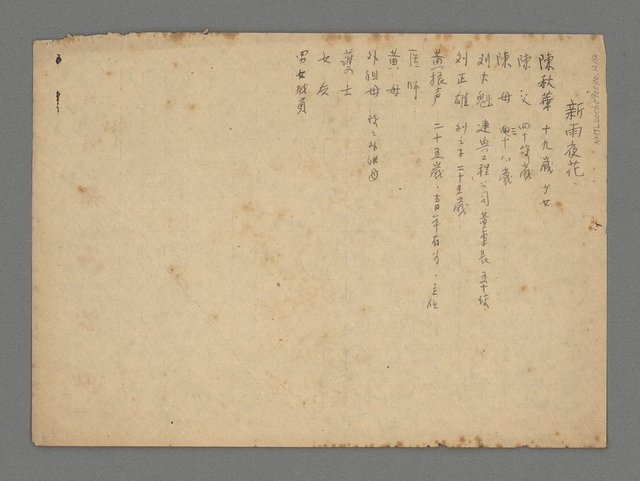 新雨夜花
陳秋華 十九歲 少女
陳父 四十歲
陳母 四十八歲
刘大魁 建興工程公司董事長 五十歲
刘正雄 刘之子 二十五歲
黃振声 二十五歲．青年有為．主任
医師
黃母
外祖母 秋之外祖母
護士
女友
男女職員